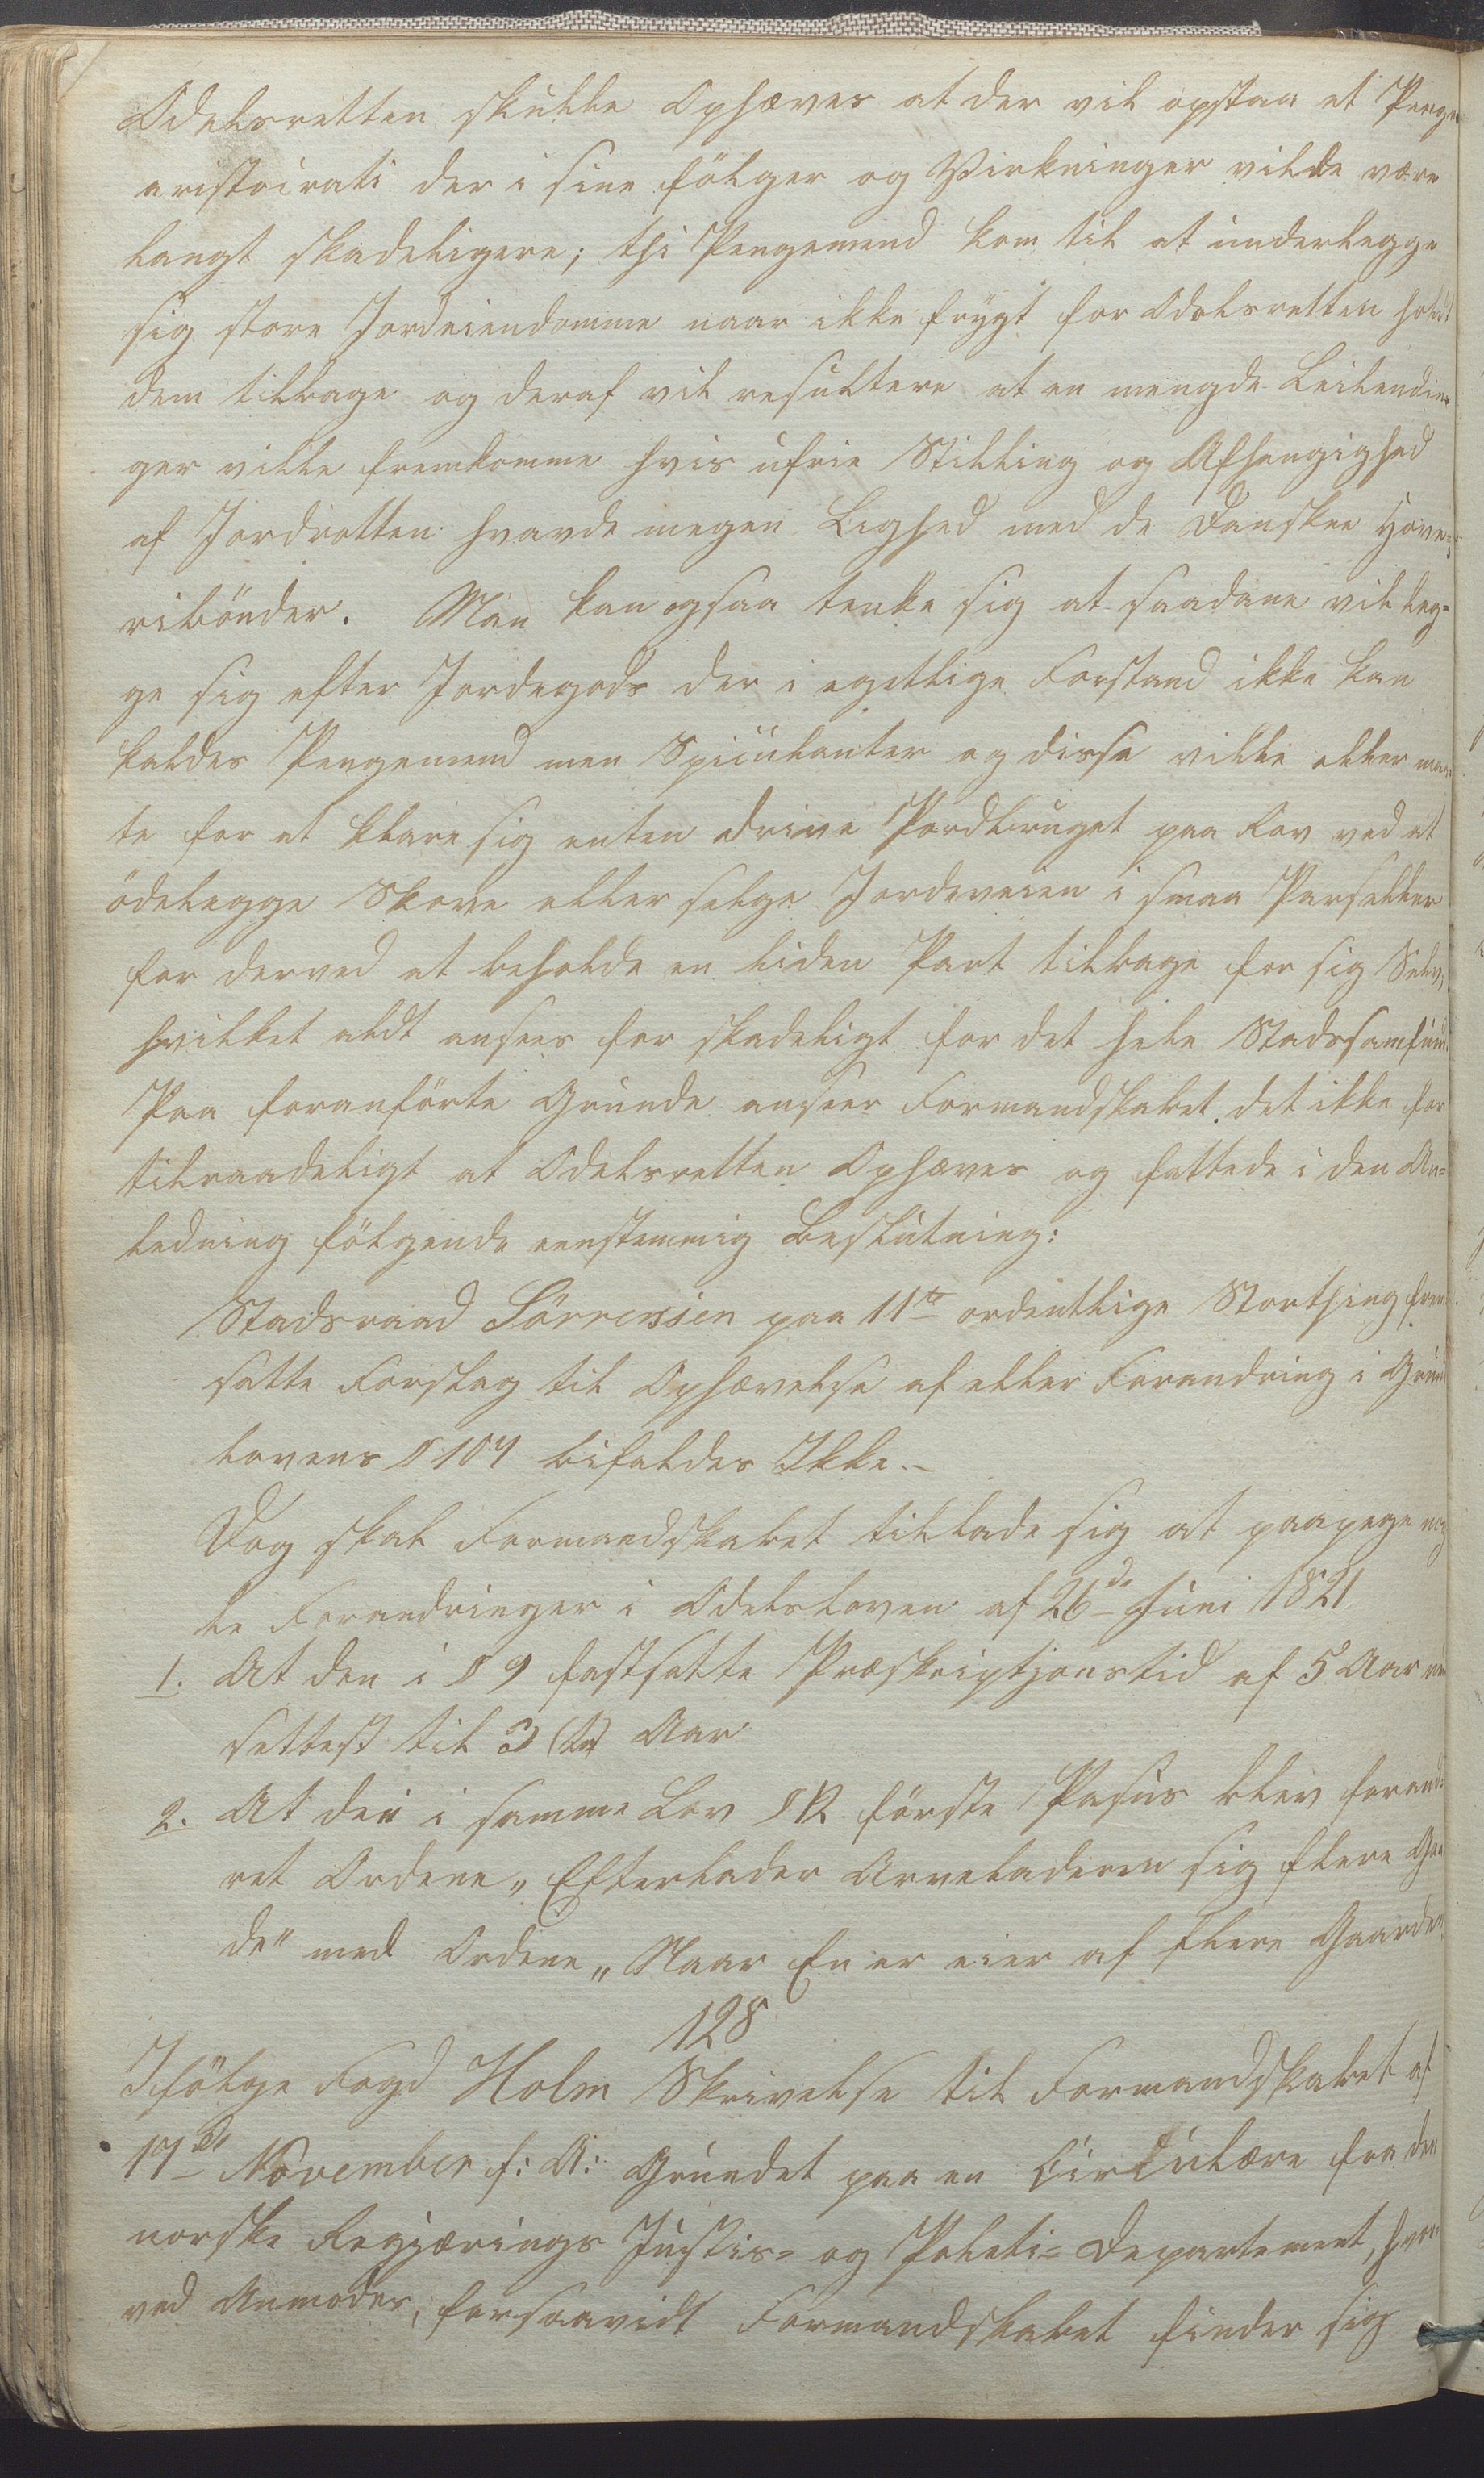 Odelsretten skulde Ophæves at der vil opstaa et Penge
aristocrati der i sine fölger og Virkninger vilde være
langt skadeligere; thi Pengemend kom til at underlegge
sig store Jordeiendomme naar ikke frygt for Odelsretten holdt
dem tilbage og deraf vil resultere at en mengde Leilendin-
ger ville fremkomme hvis ufrie Stilling og Afhengighed
af Jordrotten havde megen Lighed med de Danske Hove-
ribönder. Man kan ogsaa tenke sig at saadane vil leg-
ge sig efter Jordegods der i egetlige Forstand ikke kan
kaldes Pengemend men Speculanter og disse ville eller maa-
te for at klare sig enten drive Jordbruget paa Rov ved at
ödelegge Skove eller selge Jordeveien i smaa Parseller
for derved at beholde en liden Part tilbage for sig Selv,
hvilket aldt ansees for skadeligt for det hele Stadssamfund.
Paa foranförte Grunde anseer Formandskabet det ikke for
tilraadeligt at Odelsretten Ophæves og fattede i den An-
ledning fölgende eenstemmig Beslutning:
Stadsraad Sörrensen paa 11te ordentlige Storthing frem
satte Forslag til Ophævelse af eller Forandring i Grund
lovens § 107 bifaldes Ikke.-
Dog skal Formandskabet tillade sig at paapege nog
le Forandringer i Odelsloven af 26de Juni 1821
1. At den i § 9 fastsatte Præskriptjonstid af 5 Aar ned
settest til 3 (tre) Aar
2. At den i samme Lov § 12 förste Passus blev forand-
ret Ordene „Efterlader Arveladeren sig flere Gaar
de" med Ordene „Naar En er eier af flere Gaarde"
128
Ifölge Fogd Holm Skrivelse til Formandskabet af
17de November f: A: Grundet paa en Circulære fra den
norske Regjærings Justis- og Politi-Departement, hvor
ved Anmodes, forsaavidt Formandskabet finder sig